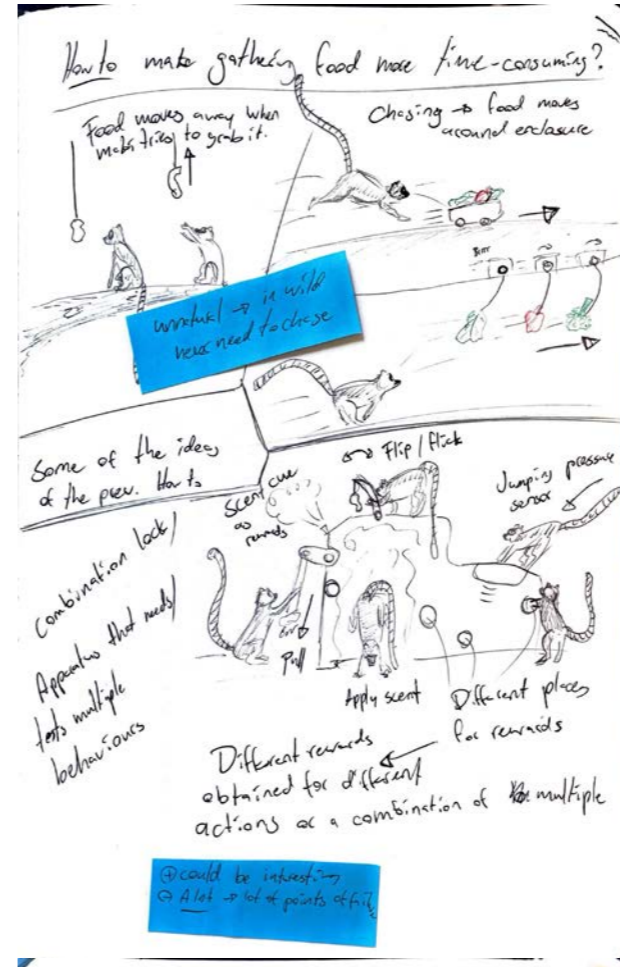 How to make gathering food more time-consuming?
Food moves away when
makis tries to grab it.
Chasing → food moves
around enclosure
Brrr
unnatural → in wild
never need to chase
Some of the ideas
of the prev. How to
Combination lock/
Apparatus that needs/
tests multiple
behaviours
Scent cue
as
rewards
Flip/flick
Jumping pressure
sensor
Pull
Apply scent
Different places
for rewards
Different rewards
obtained for different
actions or a combination of multiple
⊕ could be interesting
⊖ A lot → lot of points of